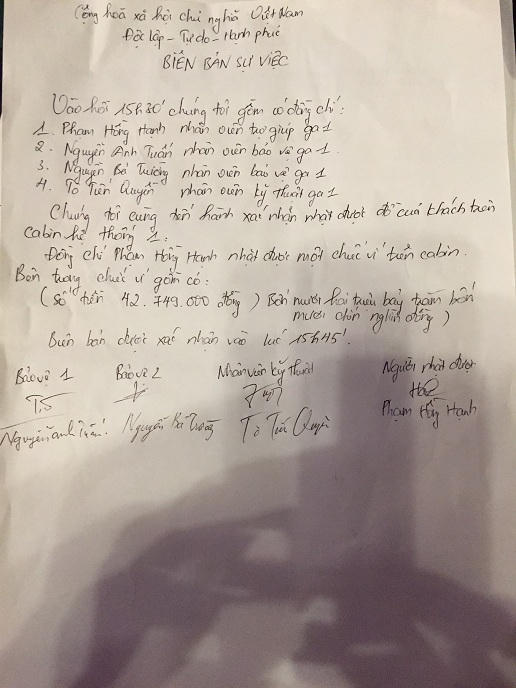 Cộng hoà xã hội chủ nghĩa Việt Nam
Độc lập - Tự do - Hạnh phúc
BIÊN BẢN SỰ VIỆC
Vào hồi 15h30' chúng tôi gồm có đồng chí:
1. Phạm Hồng Hạnh nhân viên trợ giúp ga 1
2. Nguyễn Anh Tuấn nhân viên bảo vệ ga 1.
3. Nguyễn Bá Trường nhân viên bảo vệ ga 1
4. Tô Tiến Quyền nhân viên kỹ thuật ga 1
Chúng tôi cùng tiến hành xác nhận nhặt được đồ của khách trên
cabin hệ thống 1:
Đồng chí Phạm Hồng Hạnh nhặt được một chiếc ví trên cabin.
Bên trong chiếc ví gồm có:
(số tiền 42.749.000 đồng) Bốn mươi hai triệu bảy trăm bốn
mươi chín nghìn đồng)
Biên bản được xác nhận vào lúc 15h45'.
Bảo vệ 1 Bảo vệ 2 Nhân viên kỹ thuật Người nhặt được
Nguyễn Anh Tuấn Nguyễn Bá Trường Tô Tiến Quyền Phạm Hồng Hạnh